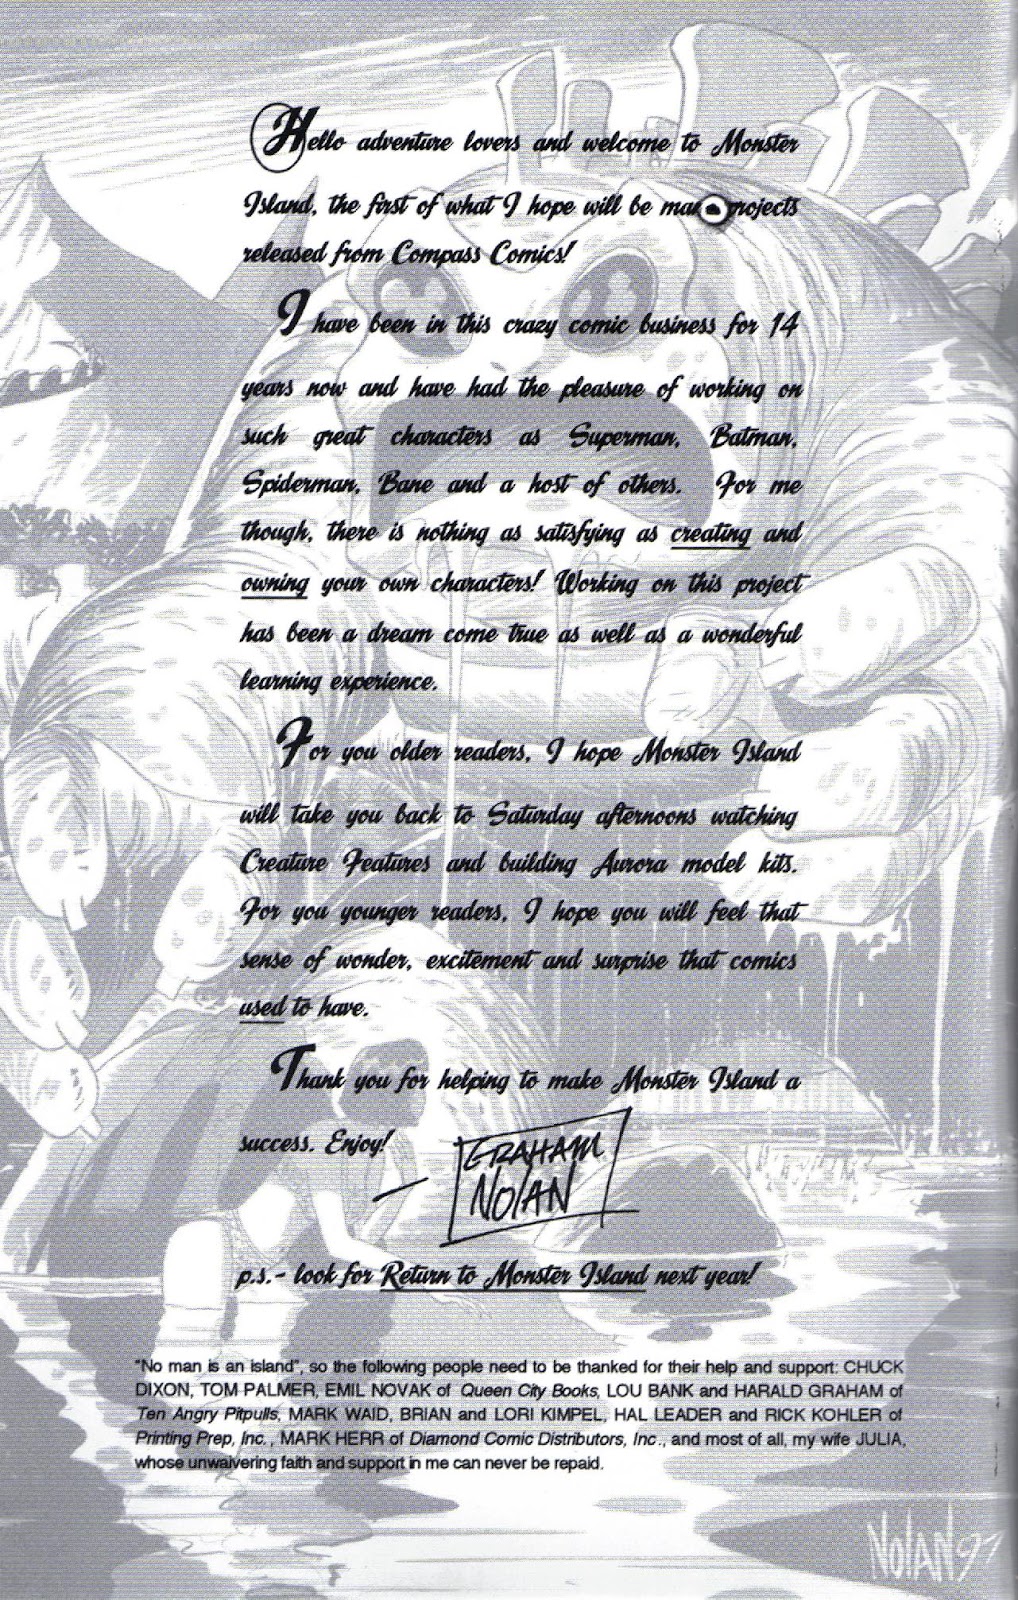 Hello adventure lovers and welcome to Monster
Island, the first of what I hope will be many projects
released from Compass Comics!
I have been in this crazy comic business for 14
years now and have had the pleasure of working on
such great characters as Superman, Batman,
Spiderman, Bane and a host of others. For me
though, there is nothing as satisfying as creating and
owning your own characters! Working on this project
has been a dream come true as well as a wonderful
learning experience.
For you older readers, I hope Monster Island
will take you back to Saturday afternoons watching
Creature Features and building Aurora model kits.
For you younger readers, I hope you will feel that
sense of wonder, excitement and surprise that comics
used to have.
Thank you for helping to make Monster Island a
success. Enjoy!
— GRAHAM
NOLAN
p.s.- look for Return to Monster Island next year!
"No man is an island", so the following people need to be thanked for their help and support: CHUCK
DIXON, TOM PALMER, EMIL NOVAK of Queen City Books, LOU BANK and HARALD GRAHAM of
Ten Angry Pitpulls, MARK WAID, BRIAN and LORI KIMPEL, HAL LEADER and RICK KOHLER of
Printing Prep, Inc., MARK HERR of Diamond Comic Distributors, Inc., and most of all, my wife JULIA,
whose unwaivering faith and support in me can never be repaid.
NOLAN 97